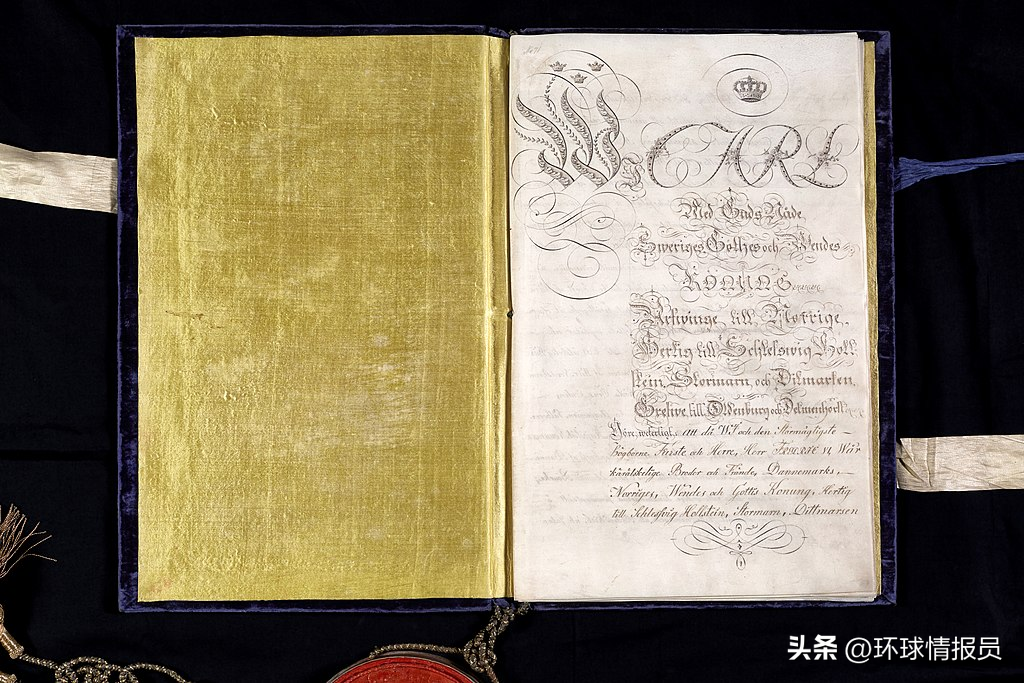 Wi CARL
Med Guds Nåde
Sweriges Göthes och Wendes
Konung
Arfvinge till Norrige,
Hertig till Schleswig Holl
stein, Stormarn, och Ditmarken,
Grefwe till Oldenburg och Delmenhorst
Göre weterligt, att då Wi och den Stormägtigste
högborne Furste och Herre, Herr FREDERIC VI, Wår
käräskelige Broder och Frände, Dannemarks,
Norriges, Wendes och Göttis Konung, Hertig
till Schleswig Holstein, Stormarn, Dittmarsen
头条 @环球情报员